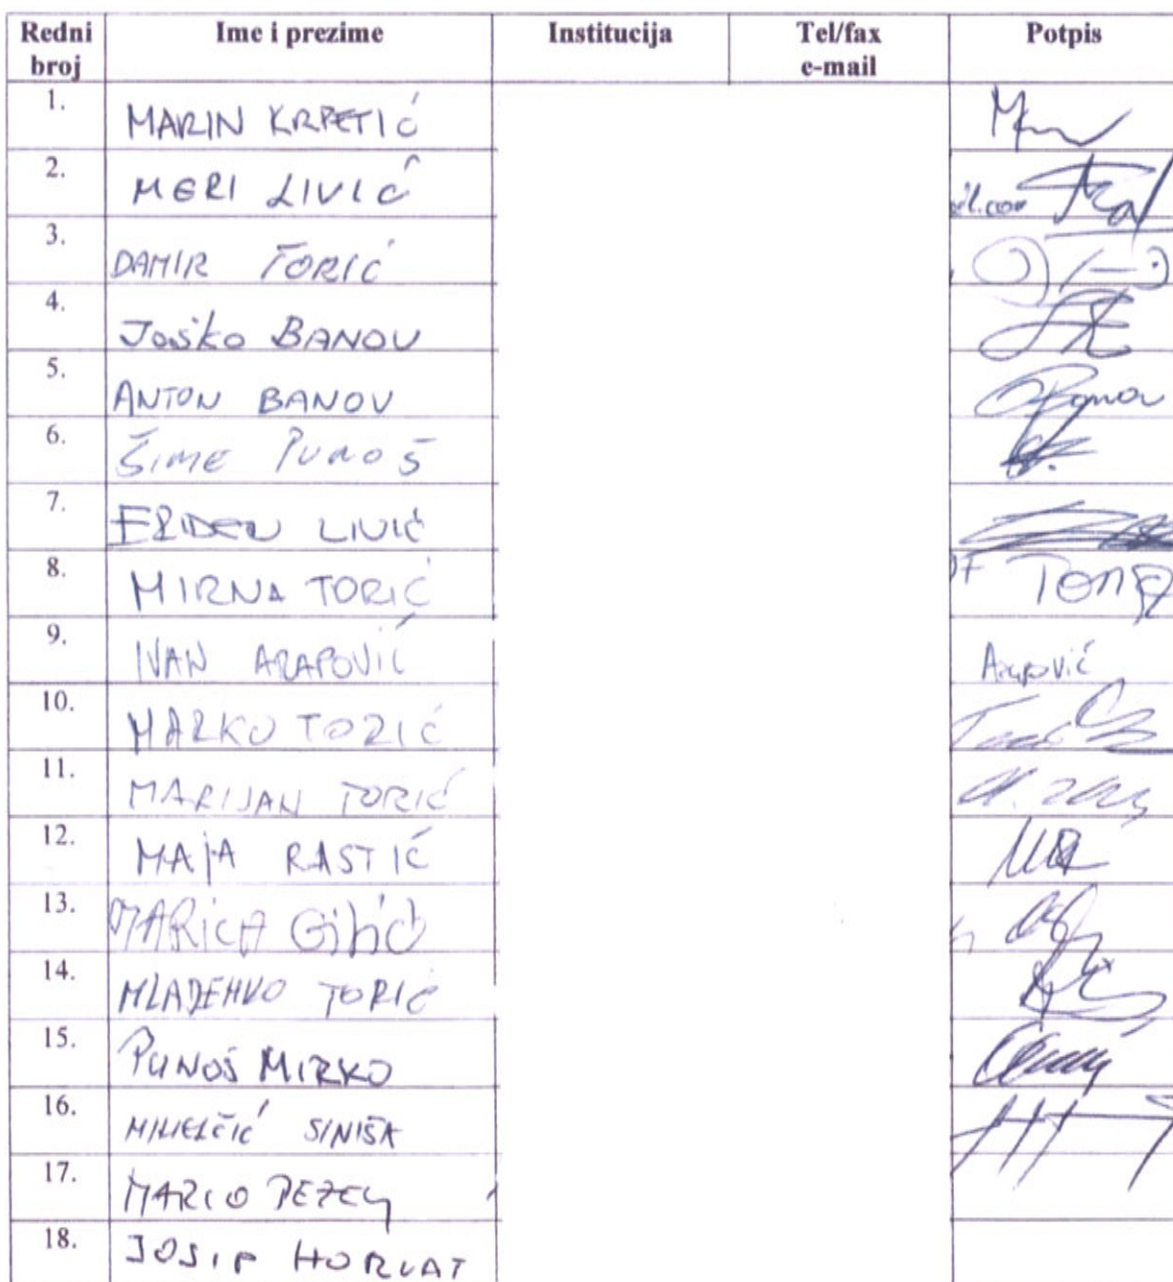 Redni broj Ime i prezime Institucija Tel/fax e-mail Potpis
1. MARIN KRPETIĆ
2. MERI LIVIĆ
3. DAMIR TORIĆ
4. Joško BANOV
5. ANTON BANOV Banov
6. ŠIME PUNOŠ
7. LIVIĆ
8. MIRNA TORIĆ
9. IVAN ARAPOVIĆ Arapović
10. MARKO TORIĆ
11. MARIJAN TORIĆ
12. MAJA RASTIĆ
13. MARICA
14. MLADENKO TORIĆ
15. PUNOŠ MIRKO
16. SINIŠA
17. MARIO PEZELJ
18. JOSIP HORVAT